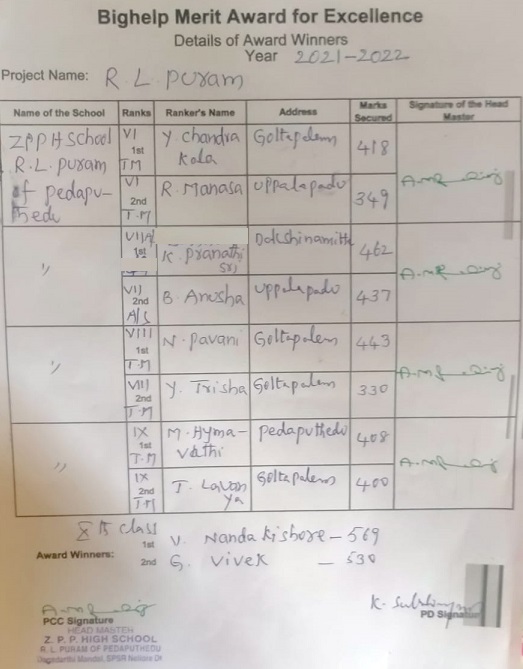 Bighelp Merit Award for Excellence
Details of Award Winners
Year 2021-2022
Project Name: R. L puram
Name of the School Ranks Ranker's Name Address Marks Secured Signature of the Head Master
ZPPH School VI 1st TM Y. chandra Kala Gollapalem 418
R.L. puram
of pedapu-
thedu
VI 2nd T.M R. Manasa uppalapadu 349
VII 1st K. pranathi Sri Dakshinamitta 462
VII 2nd A/S B. Anusha uppalapadu 437
VIII 1st T.M N. pavani Gollapalem 443
VIII 2nd T.M Y. Trisha Gollapalem 330
IX 1st T.M M. Hyma-vathi pedaputhedu 408
IX 2nd T.M T. Lavanya Gollapalem 400
X th class
Award Winners: 1st V. Nanda kishore - 569
2nd G. vivek - 530
PCC Signature
PD Signatur
HEAD MASTER
Z. P. P. HIGH SCHOOL
R. L. PURAM OF PEDAPUTHEDU
Dagadarthi Mandal, SPSR Nellore Dt